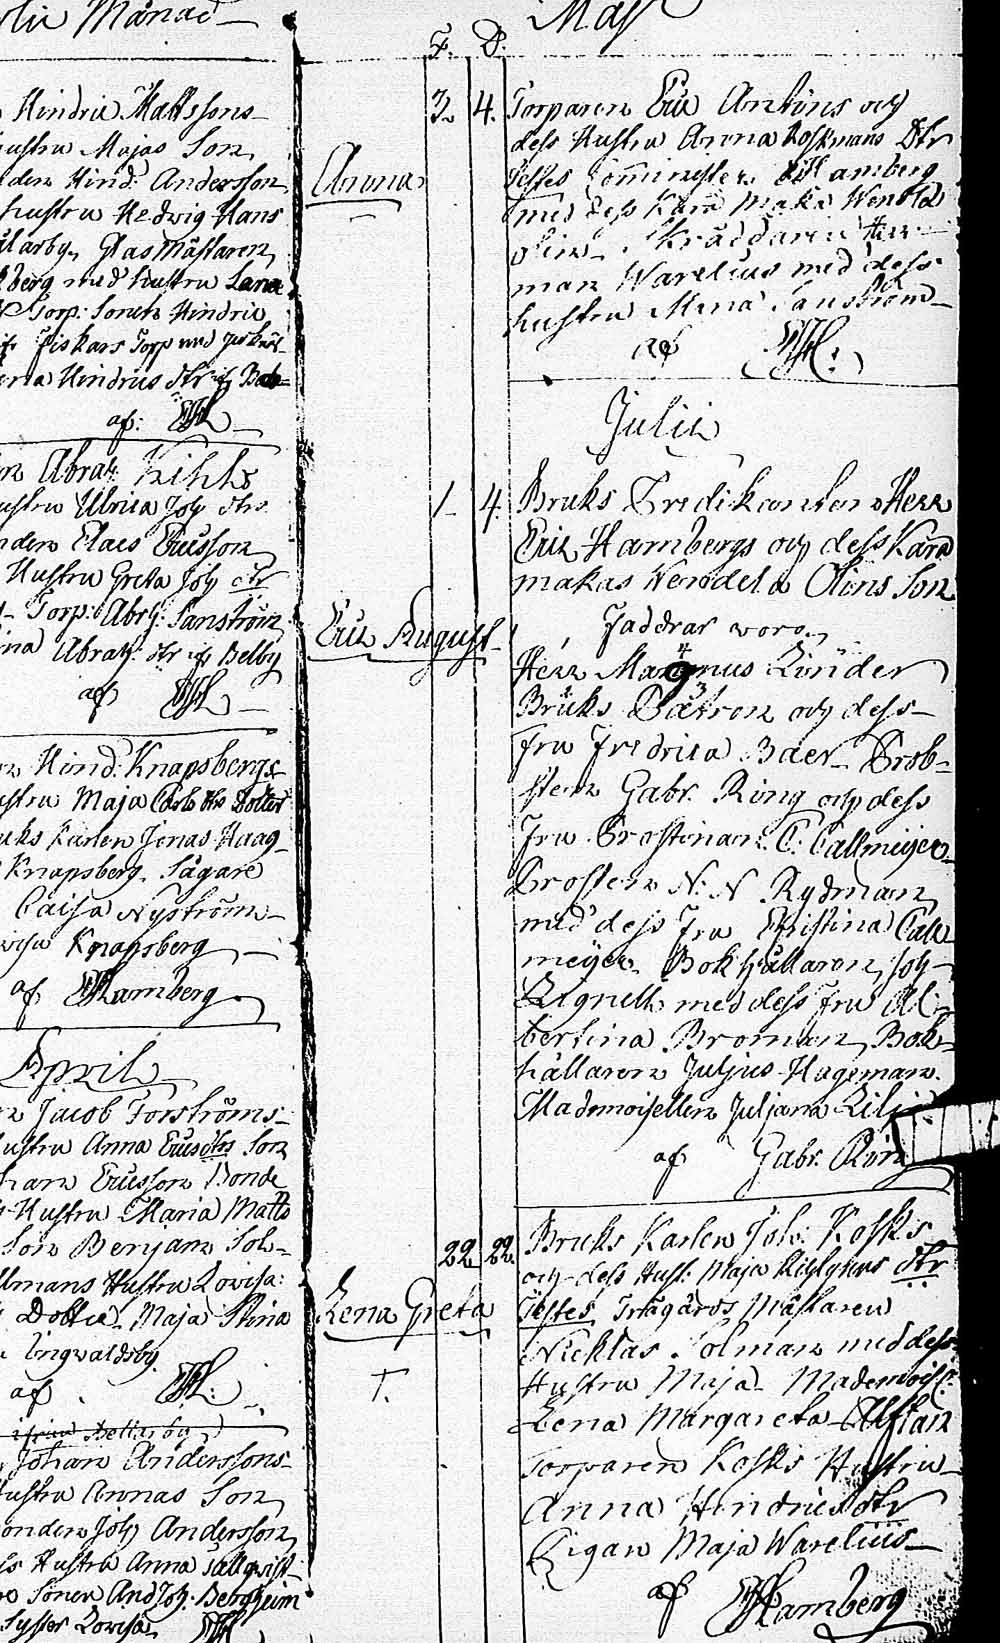 Månad
Hindric Mattssons
hustru Majas Son
Hind: Andersson
hustru Hedwig Hans
Glasmästaren
berg med hustru Lena
Torp: Sonen Hindric
Fiskars Torp med
Hindrics dtr
af: EH
Abrah: Kihls
Ulrica Joh dtrs
Claes Ericsson
Hustru Greta Joh dtr
Torp: Abrh: Sanström
Abrah: dtr Belby
af EH
Hind: Knapsbergs
Maja Carls dtrs Dotter
Karlen Jonas Haag
Knapsberg Sågare
Caisa Nyström
Knapsberg
af EHamberg
April
Jacob Forströms
Anna Ericsdtrs Son
Ericsson Bonde
Hustru Maria Matts
Son Benjam Joh
Hustru Lovisa:
Dotter Maja Stina
Lingvaldsby
af EH:
Johan Anderssons
Annas Son
Joh Andersson
Hustru Anna Sällqvist
Sonen And Joh: Bergheim
Syster Lovisa EH
Maji
F. D.
3 4. Torparen Eric Antins och
dess Hustru Anna Koskmans Dtr
Anna
Testes Cominister EHamberg
med dess Kära Maka Wendela
Olin Skräddaren Her
man Warelius med dess
hustru Mena Sanström
af EH:
Julii
1 4. Bruks Predikanten Herr
Eric Hambergs och dess Kära
makas Wendela Olins Son
Eric August
Faddrar woro
Herr Magnus Linder
Bruks Patron och dess
Fru Fredrica Baer Prob-
sten Gabr. Ring och dess
Fru Prostinan C: Callmeijer
Prosten N: N Rydman
med dess Fru Christina Call
meijer Bokhållaren Joh
Lignell med dess Fru Al
bertina Broman Bok
hållaren Juljus Hageman
Mademoisellen Juljana Lilj
af Gabr. Ring
22 22. Bruks Karlen Joh: Kosks
och dess Hust: Maja dtr
Lena Greta
Testes Trägårds Mästaren
Nicklas Solman med dess
T.
Hustru Maja Mademoisl:
Lena Margareta Alftan
Torparen Kosks Hustru
Anna Hindricsdtr
Pigan Maja Warelius
af EHamberg